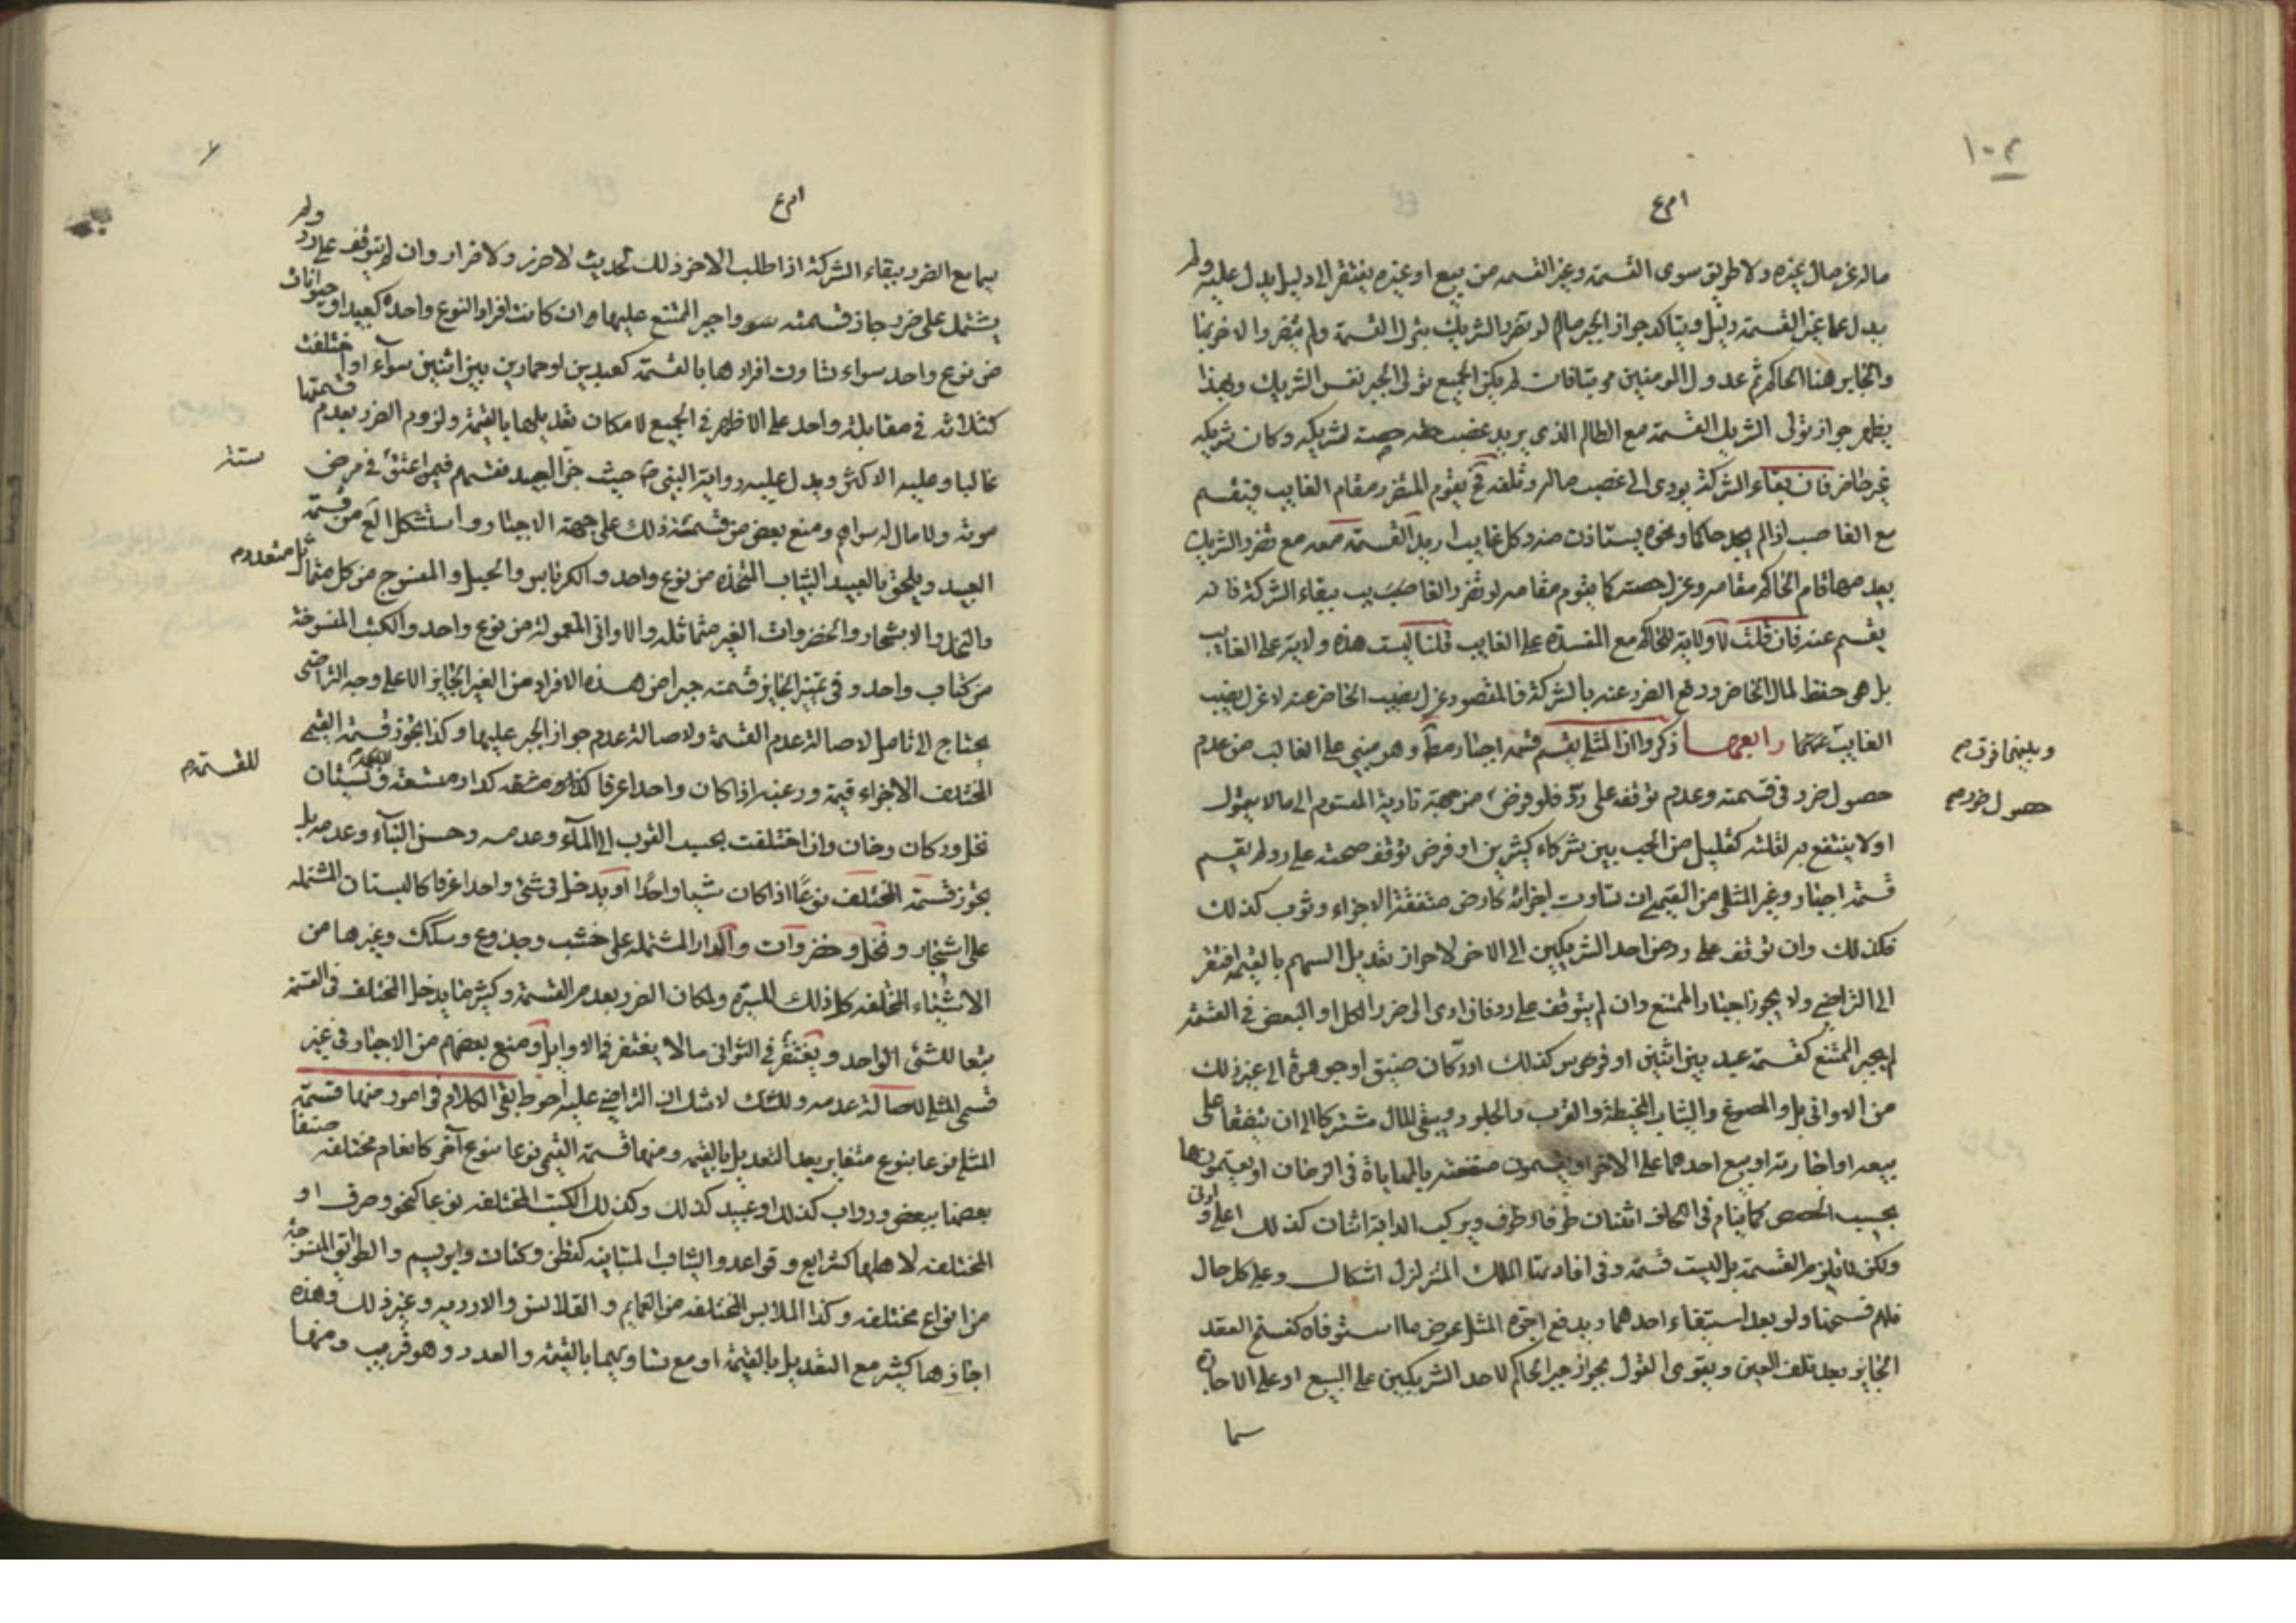 ١٠٢
ماله عن مال غيره ولا طريق سوى القسمة وغير القسمه من بيع او غيره يفتقر الى دليل يدل عليه ولم
يدل على غير القسمة دليل ويتاكد جواز الجبر مالم لو تضرر الشريك بترك القسمة ولم يتضرر الاخر بها
والجابر هنا الحاكم ثم عدول المومنين فان لم يكن الجميع تولى الجبر نفس الشريك وبهذا
يظهر جواز تولى الشريك القسمة مع الظالم الذى يريد غصب حصة لشريكه وكان شريكه
غير حاضر فان بقاء الشركة يودى الى غصب ماله وتلفه فح يقوم المتضرر مقام الغايب فيقسم
مع الغاصب اذا لم يجد حاكما ونحوه يستاذن منه وكل غايب اريد القسمة معه مع تضرر الشريك
بعدمها قام الحاكم مقامه وعزل حصته كما يقوم مقامه لو تضرر الغايب ببقاء الشركة فانه
يقسم عنه فان قلت لا ولاية للحاكم مع المفسدة على الغايب قلنا ليست هذه ولاية على الغايب
بل هى حفظ لمال الحاضر ودفع الضرر عنه بالشركة فالمقصود عزل نصيب الحاضر عنه لا عزل نصيب
الغايب عنهما رابعها ذكروا ان المثلى يقسم قسمة اجبار مط وهو مبنى على الغالب من عدم
وبينهما فرق م
حصول ضرر فى قسمته وعدم توقفه على رد فلو فرض من جهة تادية المقسوم الى مالا يتمول
حصول ضرر م
اولا ينتفع به لقلته كقليل من الحب بين شركاء كثيرين او فرض توقف صحته على رد لم يقسم
قسمة اجبار وغير المثلى من القيمى ان تساوت اجزائه كارض متفقة الاجزاء وثوب كذلك
فكذلك وان توقف على رد من احد الشريكين الى الاخر لاحراز تعديل السهم بالقيمه افتقر
الى التراضى ولا يجوز اجبار الممتنع وان لم يتوقف على رد فان ادى الى ضرر الكل او البعض فى القسمة
لم يجبر الممتنع كقسمة عبد بين اثنين او فرس كذلك او دكان ضيق او جوهرة الى غير ذلك
من الاوانى بل والمصوغ والثياب المخيطة والقرب والجلود ويبقى المال مشتركا الى ان يتفقا على
بيعه او اجارته او بيع احدهما على الاخر او يقسمون منفعته بالمهاياة فى الزمان او يقسمونها
بحسب الحصص كما ينام فى اللحاف اثنان طرفا وطرف ويركب الدابة اثنان كذلك اعلى وادنى
ولكن لا يلزم القسمة بل ليست قسمة وفى افادتها الملك المتزلزل اشكال وعلى كل حال
فلهم فسخها ولو بعد استيفاء احدهما ويدفع اجرة المثل عوض ما استوفاه كفسخ العقد
الجايز بعد تلف العين ويقوى القول بجواز جبر الحاكم لاحد الشريكين على البيع او على الاجارة
سيما
سيما مع الضرر ببقاء الشركة اذا طلب الاخر ذلك لحديث لا ضرر ولا ضرار وان لم يتوقف على رد ولم
يشتمل على ضرر جاز قسمته واجبر الممتنع عليها وان كانت افراد النوع واحدة كعبيد او حيوانات
من نوع واحد سواء تساوت افرادها بالقسمة كعبدين او حمارين بين اثنين سواء او اختلفت
كثلاثة فى مقابلة واحد على الاظهر فى الجميع لامكان تعديلها بالقيمة ولزوم الضرر بعدم قسمتها
غالبا وعليه الاكثر ويدل عليه رواية النبى ص حيث جزأ العبيد فقسم فيمن اعتق فى مرض
ستة
موته ولا مال له سواهم ومنع بعض من قسمة ذلك على جهة الاجبار واستشكل الع من قسمة
العبيد ويلحق بالعبيد الثياب المتخذة من نوع واحد والكرباس والحبل والمنسوج من كل متماثل
والنخل والاشجار والخضروات الغير متماثله والاوانى المعمولة من نوع واحد والكتب المنسوخة
من كتاب واحد وفى تمييز الجايز قسمته جبرا من هذه الافراد من الغير الجايز الا على وجه التراضى
يحتاج الى تامل لاصالة عدم القسمة ولاصالة عدم جواز الجبر عليها وكذا يجوز قسمة القيمى
المختلف الاجزاء قيمة ورغبة اذا كان واحدا عرفا كدار متسعة وبستان
للقسمة م
نخل ودكان وخان وان اختلفت بحسب القرب الى الماء وعدمه وحسن البناء وعدمه بل
يجوز قسمة المختلف نوعا اذا كان شيئا واحدا او يدخل فى شئ واحد عرفا كالبستان المشتمله
على اشجار ونخل وخضروات والدار المشتمله على خشب وجذوع وسكك وغيرها من
الاشياء المختلفه كل ذلك للسيرة ولمكان الضرر بعدم القسمة وكثيرا ما يدخل المختلف فى القسمة
تبعا للشئ الواحد ويغتفر فى الثوانى مالا يغتفر فى الاوايل ومنع بعضهم من الاجبار فى غير
قسمى المثلى لاصالة عدمه وللشك لا شك ان التراضى عليه احوط بقى الكلام فى امور منها قسمة
المثلى نوعا بنوع متغاير بعد التعديل بالقيمه ومنها قسمة القيمى نوعا بنوع آخر كانعام مختلفه صنفا
بعضها ببعض ودواب كذلك او عبيد كذلك وكذلك الكتب المختلفه نوعا كنحو وصرف او
المختلفه لاهلها كشرايع وقواعد والثياب المتباينه كقطن وكتان وابريسم والطوابق المنسوجة
من انواع مختلفه وكذا الملابس المختلفه من العمايم والقلانس والاردية وغير ذلك وهذه
اجازها كثير مع التعديل بالقيمة او مع تساويهما بالقيمة والعدد وهو قريب ومنها